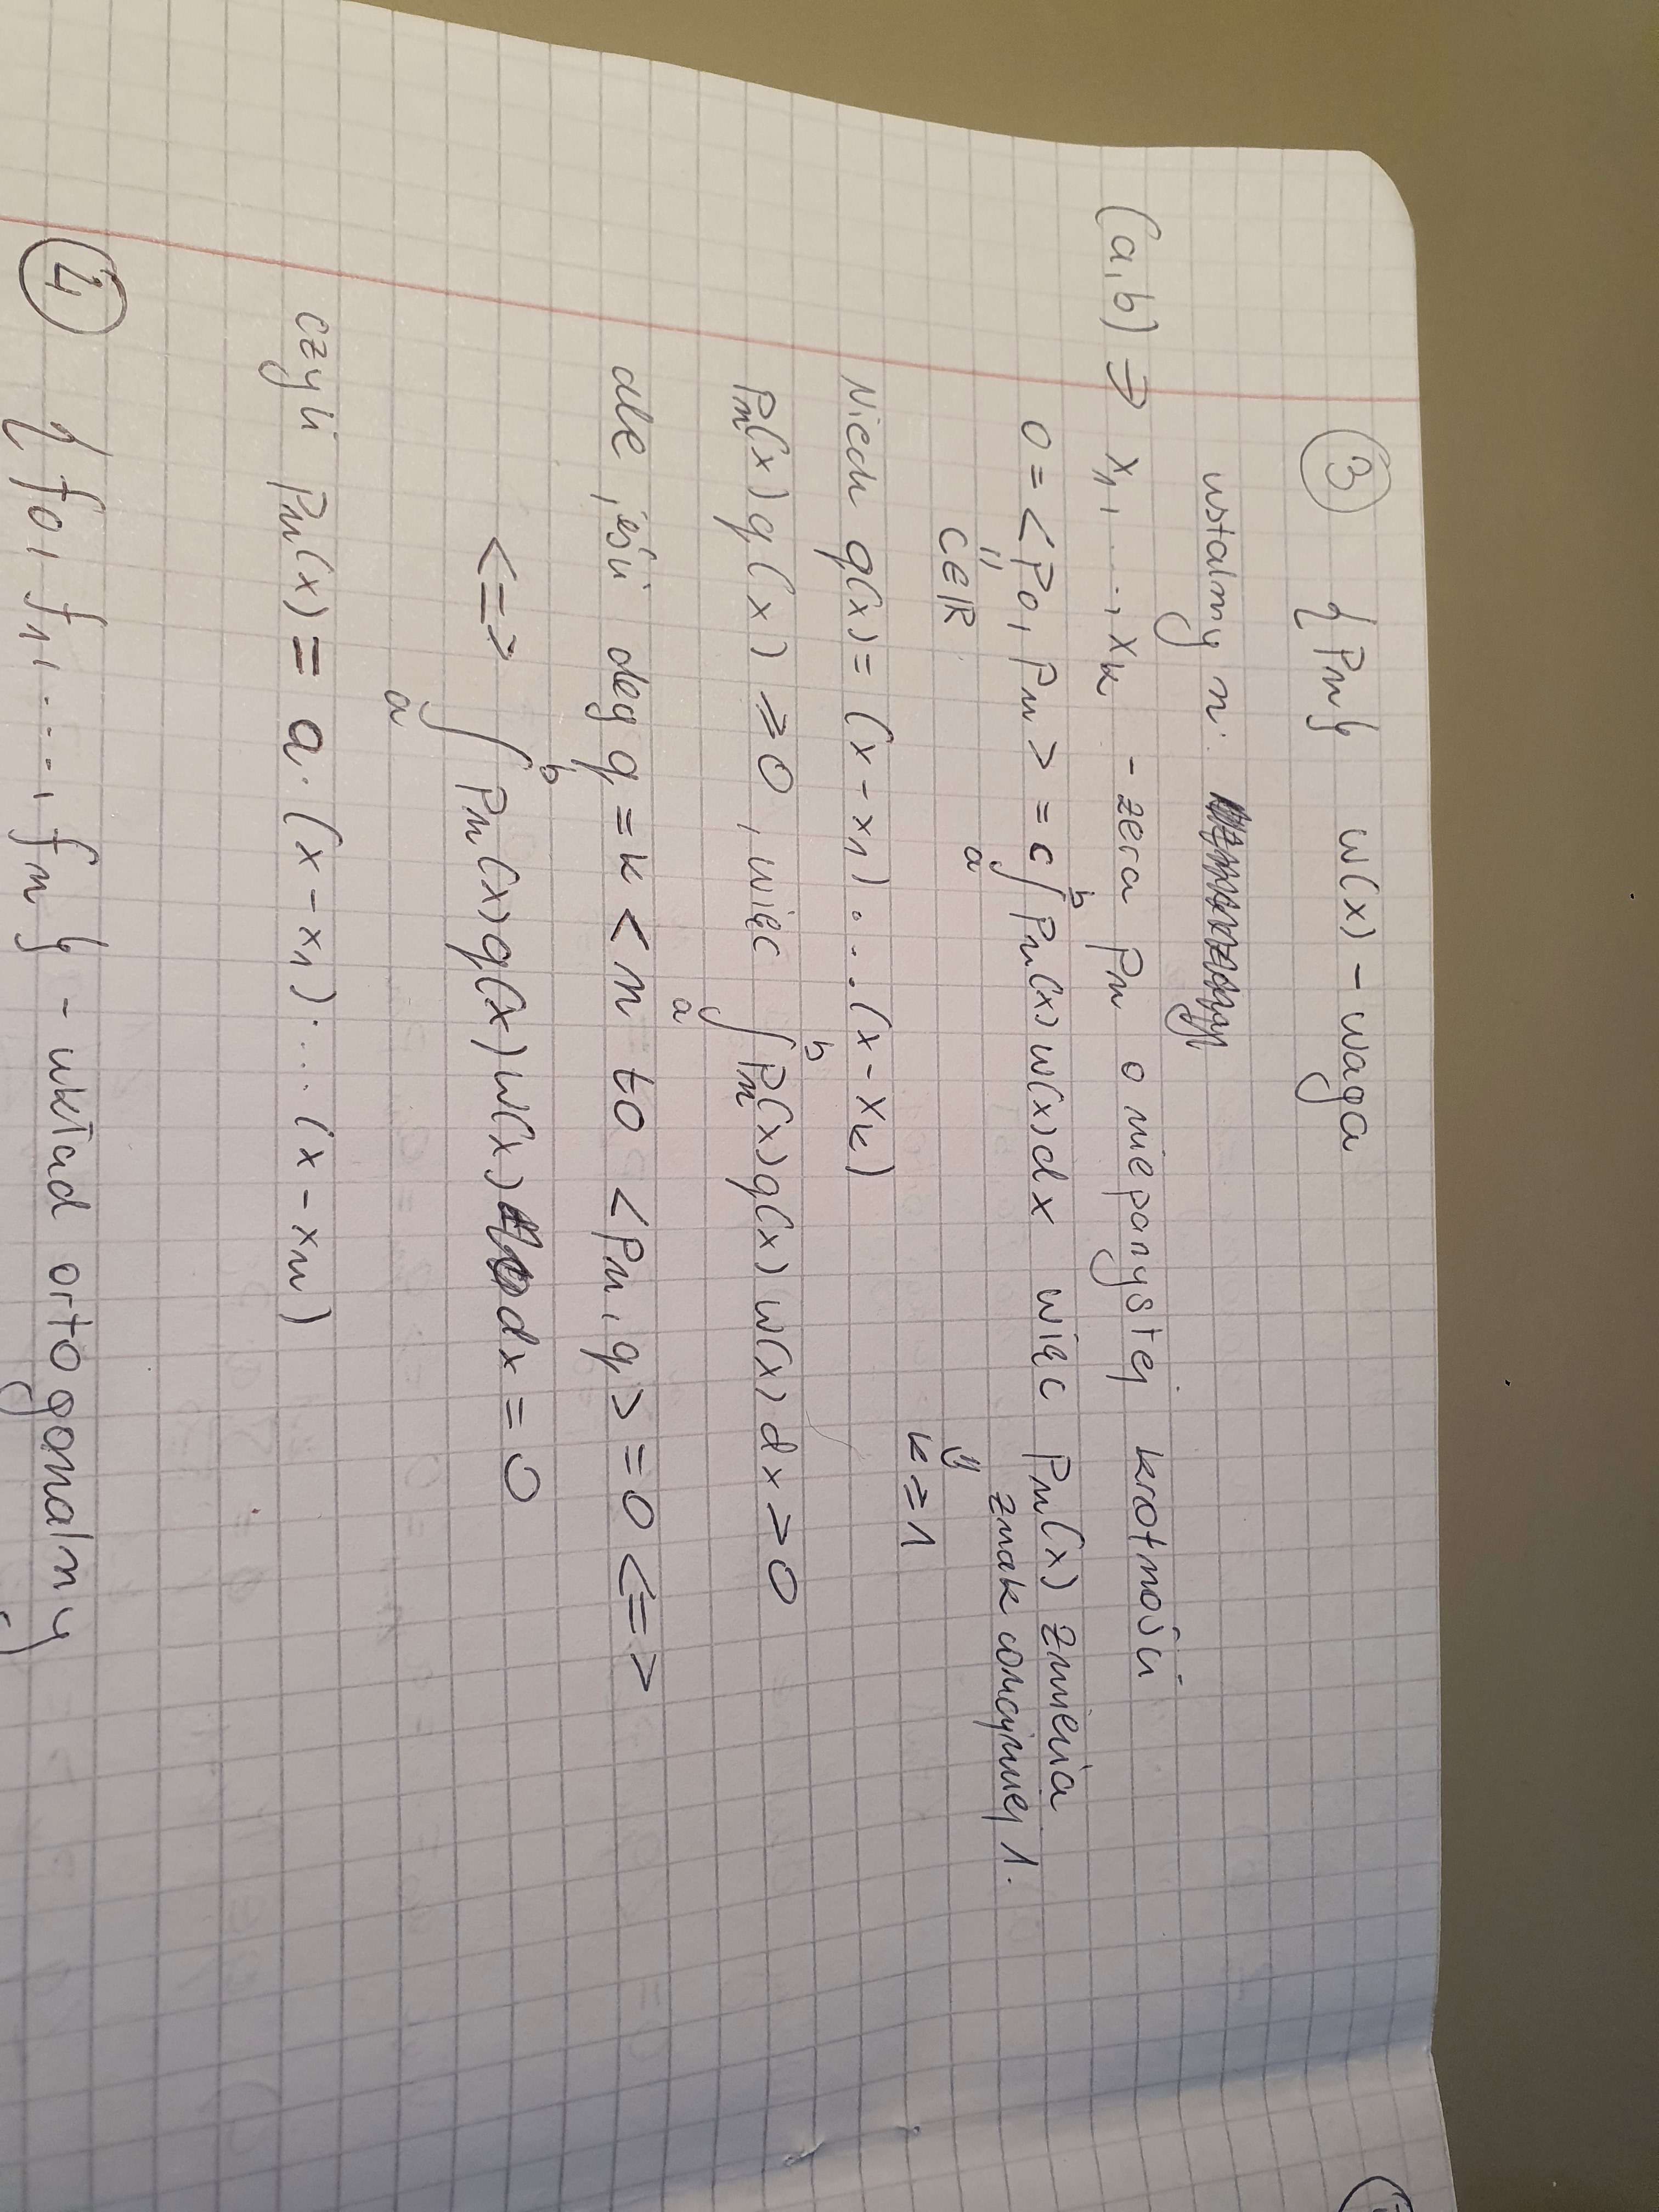 3 {Pn} w(x) - waga
ustalmy n.
(a,b) ∋ x₁, ..., xₖ - zera pₙ o nieparzystej krotności
0 = <p₀, pₙ> = c ∫ₐᵇ pₙ(x) w(x) dx więc pₙ(x) zmienia
znak conajmniej 1.
|| ⇓
c ∈ ℝ k ⩾ 1
Niech q(x) = (x - x₁) · ... (x - xₖ)
pₙ(x) q(x) ⩾ 0, więc ∫ₐᵇ pₙ(x) q(x) w(x) dx > 0
ale jeśli deg q = k < n to <pₙ, q> = 0 <=>
<=> ∫ₐᵇ pₙ(x) q(x) w(x) dx = 0
czyli pₙ(x) = a · (x - x₁) · ... (x - xₙ)
4 {f₀, f₁, ..., fₙ} - układ ortogonalny